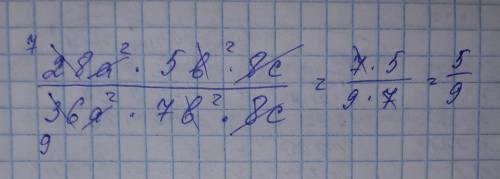 7
28a² · 5b² · 8c / 36a² · 7b² · 8c = 7 · 5 / 9 · 7 = 5 / 9
9